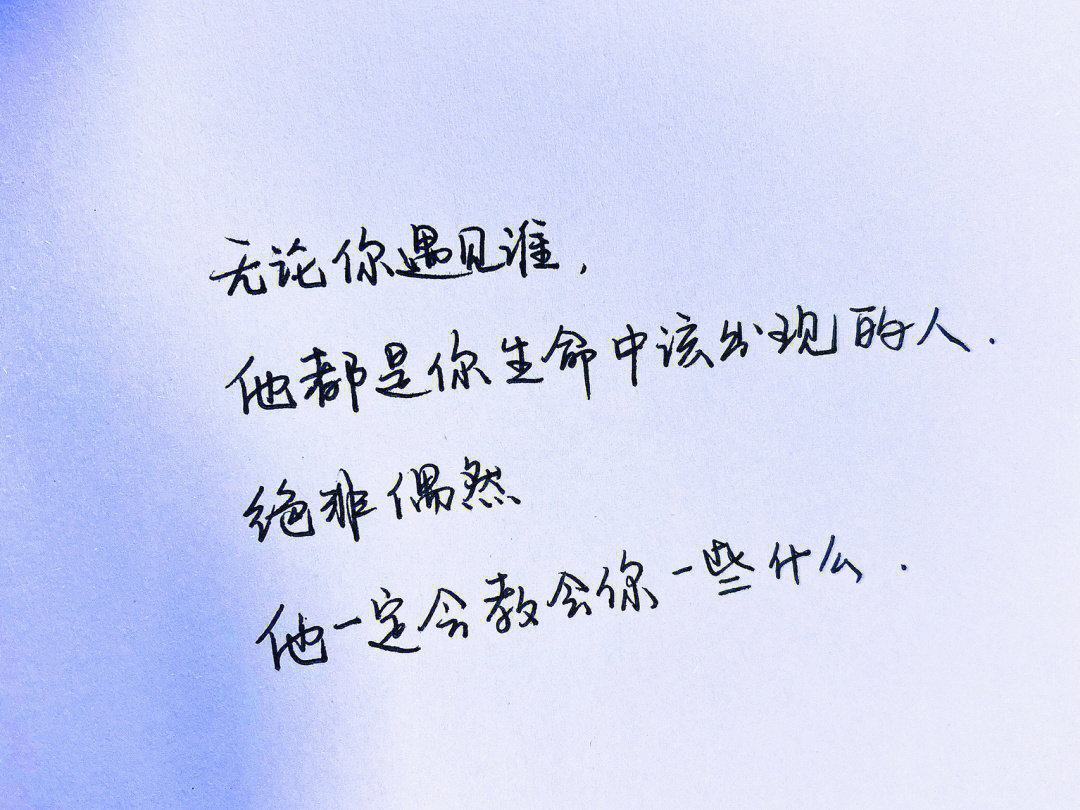 无论你遇见谁,
他都是你生命中该出现的人.
绝非偶然
他一定会教会你一些什么.